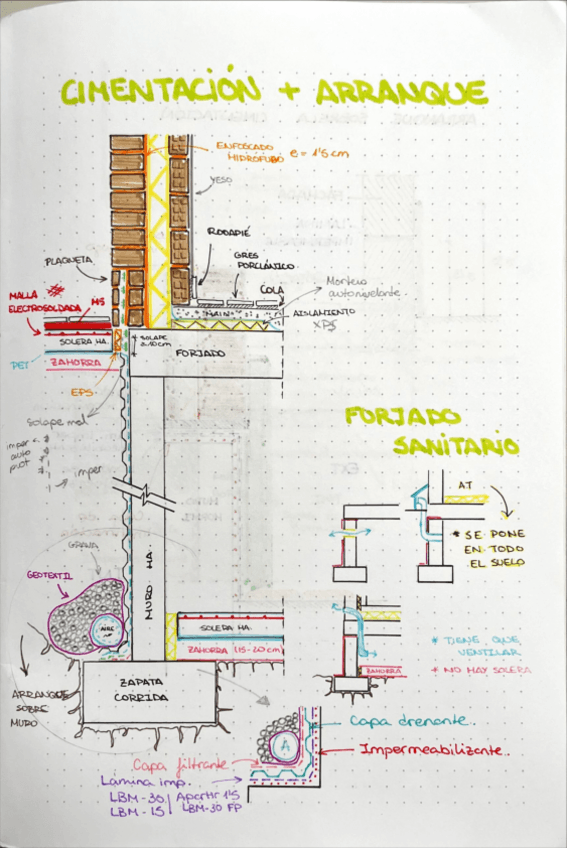 CIMENTACIÓN + ARRANQUE
ENFOSCADO
HIDROFUGO e = 1'5 cm
YESO
RODAPIÉ
GRES
PORCLÁNICO
PLAQUETA
COLA
Mortero
autonivelante.
MALLA
ELECTROSOLDADA
M5
AISLAMIENTO
XPS
SOLERA HA.
* SOLAPE
≥10cm
FORJADO
PET
ZAHORRA
EPS
Solape mal
imper
auto
prot
imper
FORJADO
SANITARIO
AT
* SE PONE
EN TODO
EL SUELO
GRAVA
GEOTEXTIL
MURO HA.
SOLERA HA.
ZAHORRA (15-20cm)
* TIENE QUE
VENTILAR
ZAHORRA
* NO HAY SOLERA
ARRANQUE
SOBRE
MURO
ZAPATA
CORRIDA
A
Capa drenante.
Impermeabilizante.
Capa filtrante
Lámina imp.
LBM-30 Apartir 1'5
LBM-15 LBM-30 FP